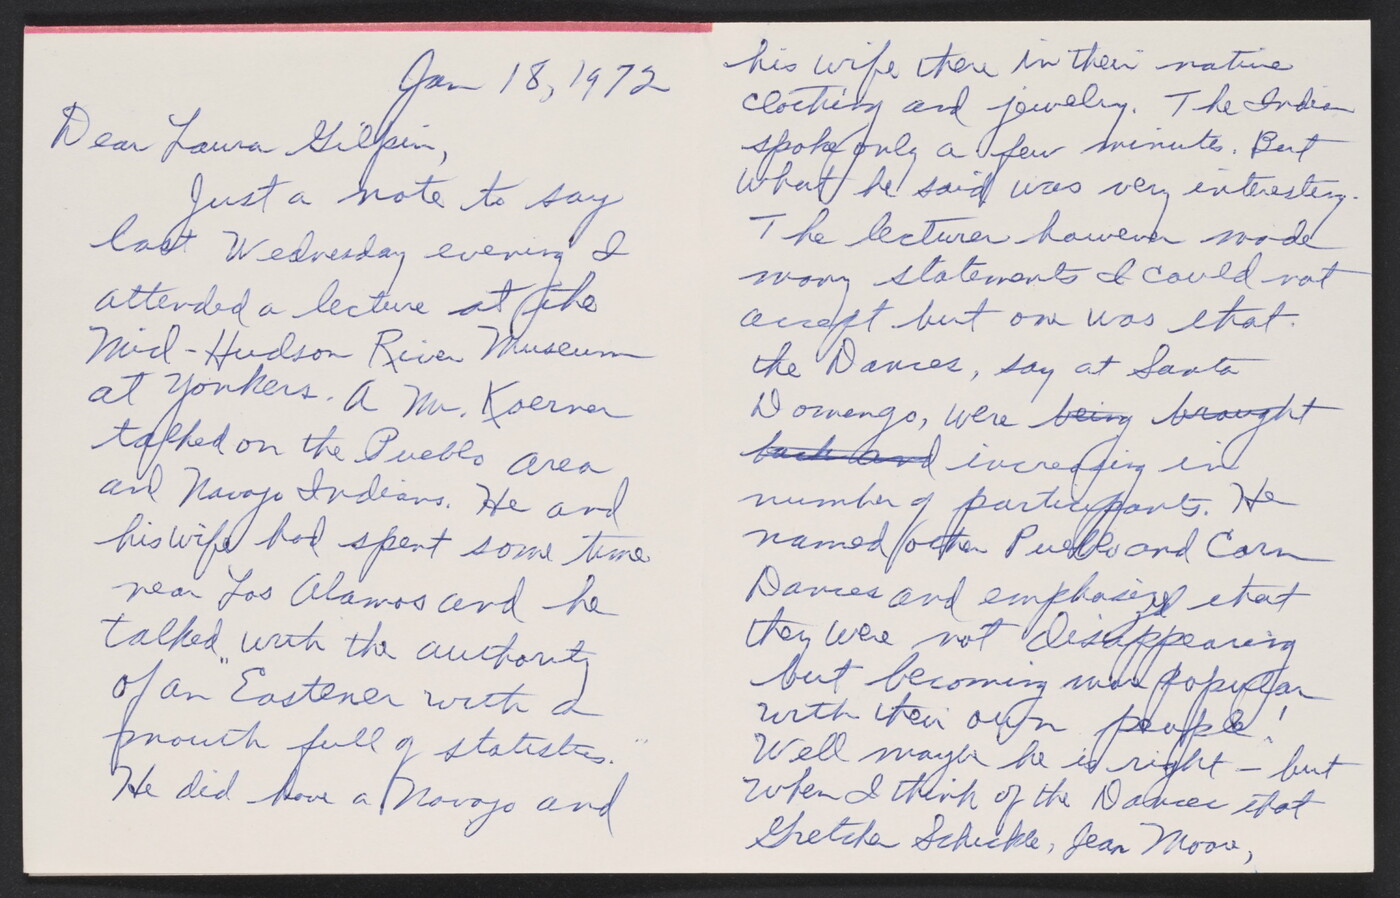 Jan 18, 1972
Dear Laura Gilpin,
Just a note to say
last Wednesday evening I
attended a lecture at the
Mid-Hudson River Museum
at Yonkers. A Mr. Koerner
talked on the Pueblo area
and Navajo Indians. He and
his wife had spent some time
near Los Alamos and he
talked "with the authority
of an Eastener with a
mouth full of statistics."
He did have a Navajo and
his wife there in their native
clothing and jewelry. The Indian
spoke only a few minutes. But
what he said was very interesting.
The lecturer however made
many statements I could not
accept but one was that
the Dances, say at Santo
Domengo, were being brought
back and increasing in
number of participants. He
named other Pueblo and Corn
Dances and emphasized that
they were not disappearing
but becoming more popular
with their own people!
Well maybe he is right – but
when I think of the Dances that
Gretchen Schickle, Jean Moore,